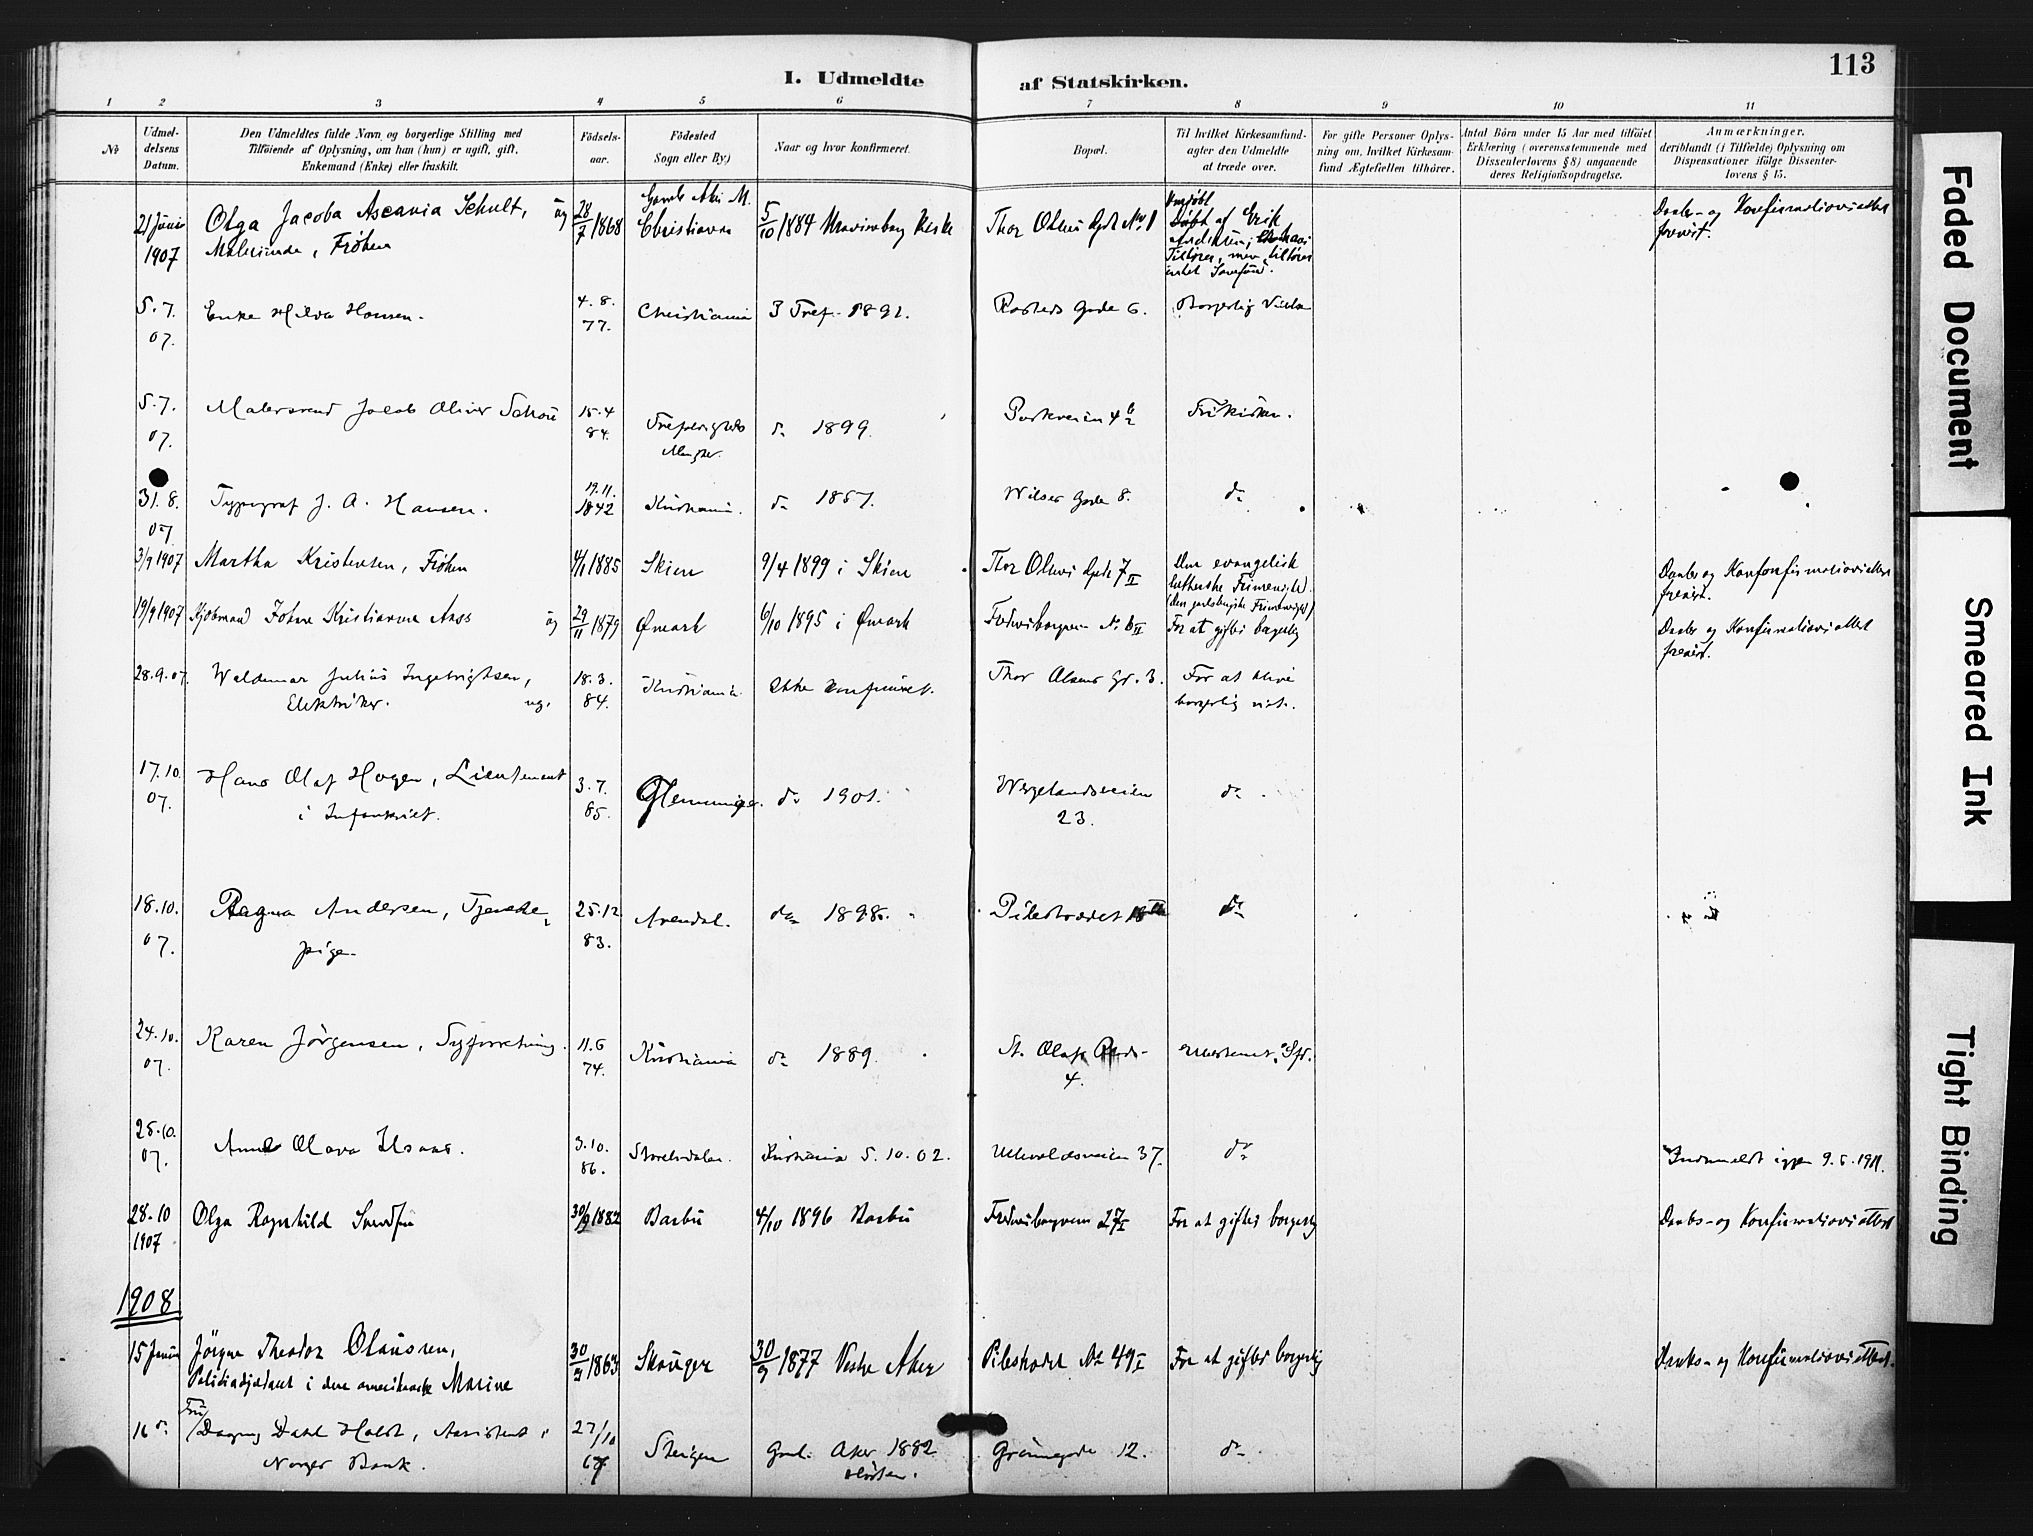 113
I. Udmeldte af Statskirken.
1 2 3 4 5 6 7 8 9 10 11
No
Udmeldelsens Datum.
Den Udmeldtes fulde Navn og borgerlige Stilling med
Tilføiende af Oplysning, om han (hun) er ugift, gift,
Enkemand (Enke) eller fraskilt.
Fødselsaar.
Fødested
Sogn eller By)
Naar og hvor konfirmeret.
Bopæl.
Til hvilket Kirkesamfund
agter den Udmeldte
at træde over.
For gifte Personer Oplysning om, hvilket Kirkesamfund Ægtefællen tilhører.
Antal Børn under 15 Aar med tilføiet
Erklæring (overensstemmende med
Dissenterlovens § 8) angaaende
deres Religionsopdragelse.
Anmærkninger,
deriblandt (i Tilfælde) Oplysning om
Dispensationer ifølge Dissenterlovens § 15.
21 Juni 1907
Olga Jacoba Ascania Schult, ug
Malerinde, Frøken
28/7 1868
Gamle Akers M.
Christiania
5/10 1884
Thor Olsens Gade No 1
Daabs- og Konfirmationsattest
forevist.
5.7.07.
Enke Hilda Hansen.
4.8.77.
Christiania
3 Tref. 1892.
Rosteds Gade 6.
Borgerlig
5.7.07.
Malersvend Jacob Oliver Schou
15.4 84.
Trefoldigheds Menighed.
do 1899.
Parkveien 4
Frikirken.
31.8.07
Typograf J. A. Hansen.
19.11.1842
Kristiania.
do 1857.
Wilses Gade 8.
do
3/9 1907
Martha Kristensen, Frøken
4/1 1885
Skien
9/4 1899 i Skien
Thor Olsens Gade 7 II
Den evangelisk
lutherske Frimenighed
Daabs og Konfirmationsattest
forevist.
19/9 1907
Kjøbmand Johan Kristian Aass ug
29/11 1879
Ømark
6/10 1895 i Ømark
Fredensborgvei No 6 II
For at giftes borgerlig
Daabs og Konfirmationsattest
forevist.
28.9.07.
Waldemar Julius Ingebrigtsen,
Elektriker. ug.
18.3.84.
Kristiania
Ikke konfirmeret.
Thor Olsens Gd. 3.
For at blive
borgerlig viet.
17.10.07.
Hans Olaf Hagen, Lieutenant
i Infanteriet.
3.7.85.
Glemminge.
do 1901.
Wergelandsveien
23.
do
18.10.07.
Ragna Andersen, Tjenestepige.
25.12 83.
Arendal.
do 1898.
Pilestrædet 18
do
24.10.07.
Karen Jørgensen, Syforretning.
11.6 74.
Kristiania
do 1889.
St. Olafs Gade
4.
ubestemt
25.10.07.
Anne Olava
3.10.86.
Kristiania 5.10.02.
Ullevoldsveien 37.
do
Indmeldt igjen 9.5.1911.
28.10 1907
Olga Ragnhild
30/9 1882
Barbu
4/10 1896 Barbu
Fredensborgveien 27 I
For at giftes borgerlig
Daabs- og Konfirmationsattest
1908
15 Januar
Jörgen Theodor Olaussen,
i den amerikanske Marine
30/7 1863
Skouger
30/9 1877 Vestre Aker
Pilestrædet No 49 I
For at giftes borgerlig
Daabs- og Konfirmationsattest.
16 do
Fru
Dagny Dahl Holst, Assistent i
Norges Bank.
27/10 67
Steigen
Gml. Aker 1882
Grönnegade 12.
do